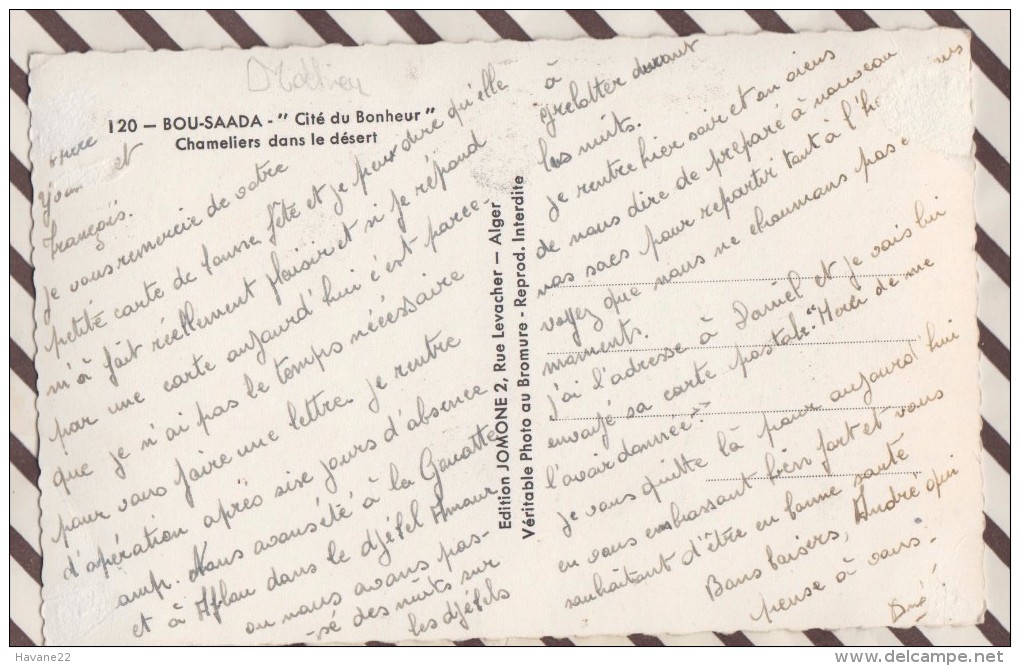 120 — BOU-SAADA - " Cité du Bonheur "
Chameliers dans le désert
et
François.
je vous remercie de votre
petite carte de bonne fête et je peux dire qu'elle
m'a fait réellement plaisir et si je répond
par une carte aujourd'hui c'est parce-
que je n'ai pas le temps nécessaire
pour vous faire une lettre. je rentre
d'opération après sixe jours d'absence
amp. Nous avons été à la Gauatte
et à Aflou dans le djébel Amour
ou nous avons pas-
-sé des nuits sur
les djébels
à
grelotter durant
les nuits.
je rentre hier soir et on viens
de nous dire de préparé à nouveau
nos sacs pour repartir tant à l'h
voyez que nous ne chaumons pas
moments.
j'ai l'adresse à Daniel et je vais lui
envoyé sa carte postale. "Merci de me
l'avoir donnée."
je vous quitte là pour aujourd'hui
en vous embrassant bien fort et vous
souhaitant d'être en bonne santé
Bons baisers, André qui
pense à vous.
Edition JOMONE 2, Rue Levacher — Alger
Véritable Photo au Bromure - Reprod. Interdite
Havane22
www.delcampe.net